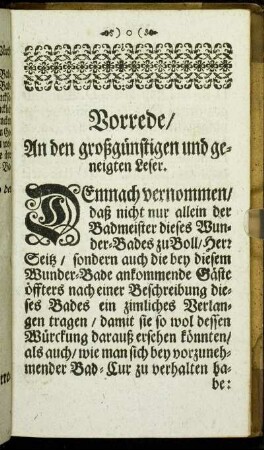 Vorrede/
An den großgünstigen und ge-
neigten Leser.
DEmnach vernommen/
daß nicht nur allein der
Badmeister dieses Wun-
der-Bades zu Boll/ Herr
Seitz/ sondern auch die bey diesem
Wunder-Bade ankommende Gäste
öffters nach einer Beschreibung die-
ses Bades ein zimliches Verlan-
gen tragen/ damit sie so wol dessen
Würckung darauß ersehen könnten/
als auch/ wie man sich bey vorzuneh-
mender Bad-Cur zu verhalten ha-
be: